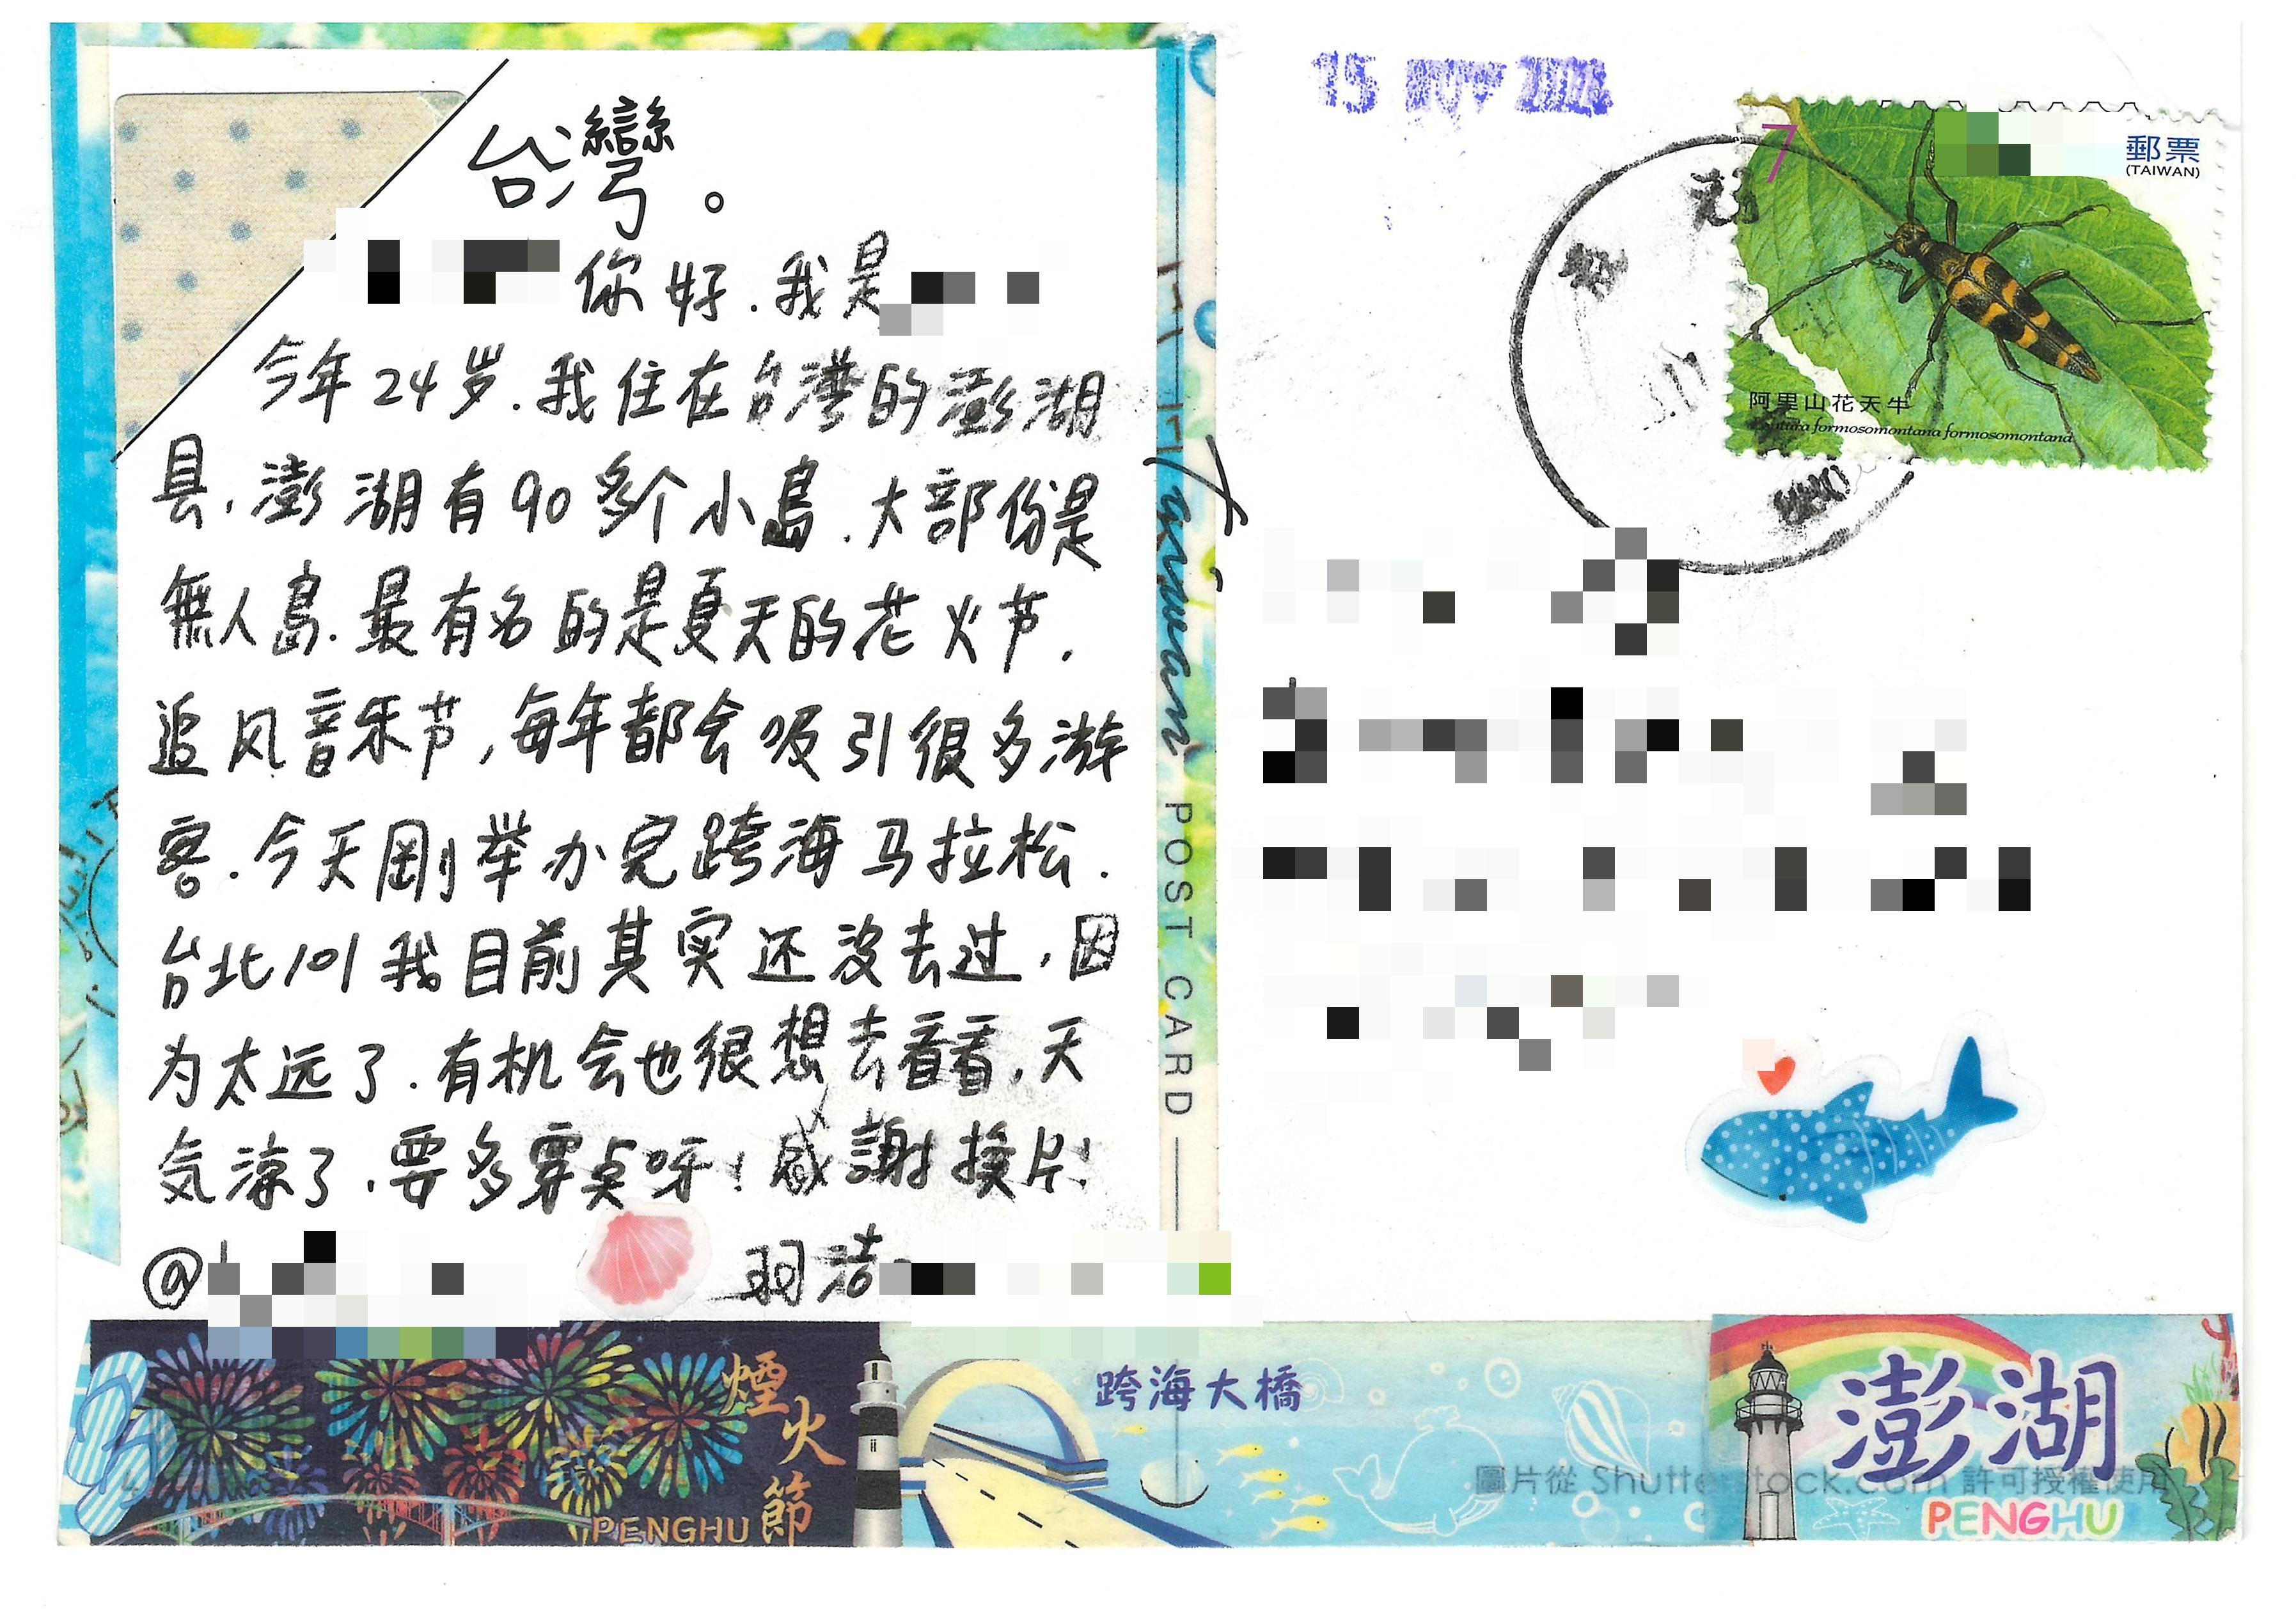 台灣。
你好.我是
今年24岁.我住在台湾的澎湖
县,澎湖有90多个小島.大部份是
無人島.最有名的是夏天的花火节,
追风音乐节,每年都会吸引很多游
客.今天刚举办完跨海马拉松.
台北101我目前其实还没去过,因
为太远了.有机会也很想去看看,天
気凉了,要多穿点呀!感謝換片!
@
羽洁
Taiwan POST CARD
15 NOV
7
郵票
(TAIWAN)
阿里山花天牛
formosomontana formosomontana
煙火節
PENGHU
跨海大橋
澎湖
PENGHU
圖片從 Shutterstock.com 許可授權使用